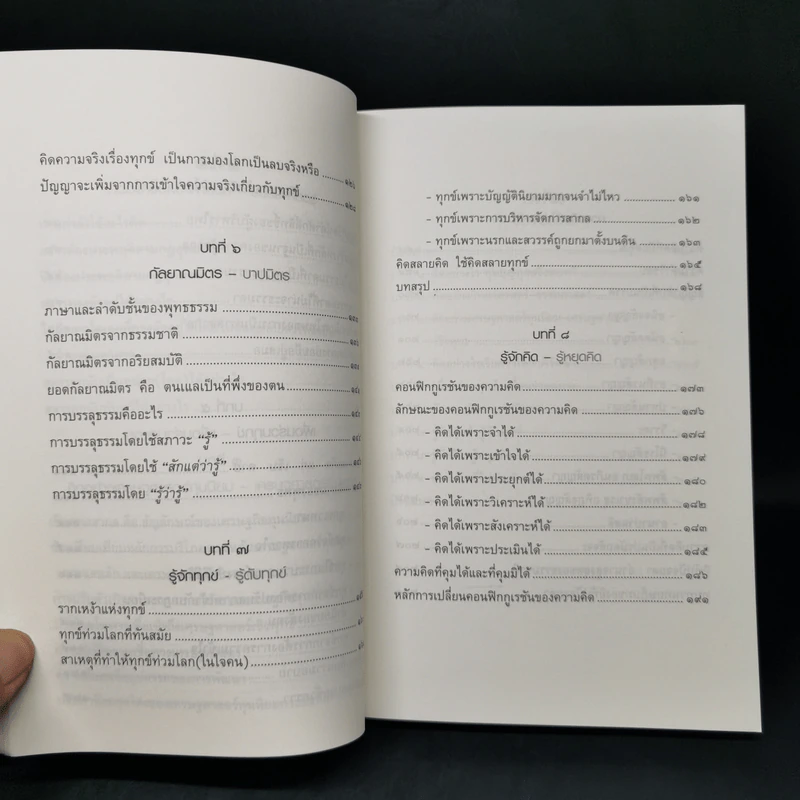 คิดความจริงเรื่องทุกข์ เป็นการมองโลกเป็นลบจริงหรือ
ปัญญาจะเพิ่มจากการเข้าใจความจริงเกี่ยวกับทุกข์
บทที่ ๖
กัลยาณมิตร – บาปมิตร
ภาษาและลำดับชั้นของพุทธธรรม
กัลยาณมิตรจากธรรมชาติ
กัลยาณมิตรจากอริยสมบัติ
ยอดกัลยาณมิตร คือ ตนแลเป็นที่พึ่งของตน
การบรรลุธรรมคืออะไร
การบรรลุธรรมโดยใช้สภาวะ “รู้”
การบรรลุธรรมโดยใช้ “สักแต่ว่ารู้”
การบรรลุธรรมโดย “รู้ว่ารู้”
บทที่ ๗
รู้จักทุกข์ - รู้ดับทุกข์
รากเหง้าแห่งทุกข์
ทุกข์ท่วมโลกที่ทันสมัย
สาเหตุที่ทำให้ทุกข์ท่วมโลก(ในใจคน)
- ทุกข์เพราะบัญญัตินิยามมากจนจำไม่ไหว ๑๖๑
- ทุกข์เพราะการบริหารจัดการสากล ๑๖๒
- ทุกข์เพราะนรกและสวรรค์ถูกยกมาตั้งบนดิน ๑๖๓
คิดสลายคิด ใช้คิดสลายทุกข์ ๑๖๕
บทสรุป ๑๖๘
บทที่ ๘
รู้จักคิด – รู้หยุดคิด
คอนฟิกกูเรชันของความคิด ๑๗๓
ลักษณะของคอนฟิกกูเรชันของความคิด ๑๗๖
- คิดได้เพราะจำได้ ๑๗๘
- คิดได้เพราะเข้าใจได้ ๑๗๙
- คิดได้เพราะประยุกต์ได้ ๑๘๐
- คิดได้เพราะวิเคราะห์ได้ ๑๘๒
- คิดได้เพราะสังเคราะห์ได้ ๑๘๓
- คิดได้เพราะประเมินได้ ๑๘๕
ความคิดที่คุมได้และที่คุมมิได้ ๑๘๖
หลักการเปลี่ยนคอนฟิกกูเรชันของความคิด ๑๙๑